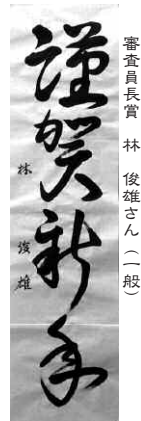 審査員長賞　林　俊雄さん（一般）
謹賀新年
林　俊雄